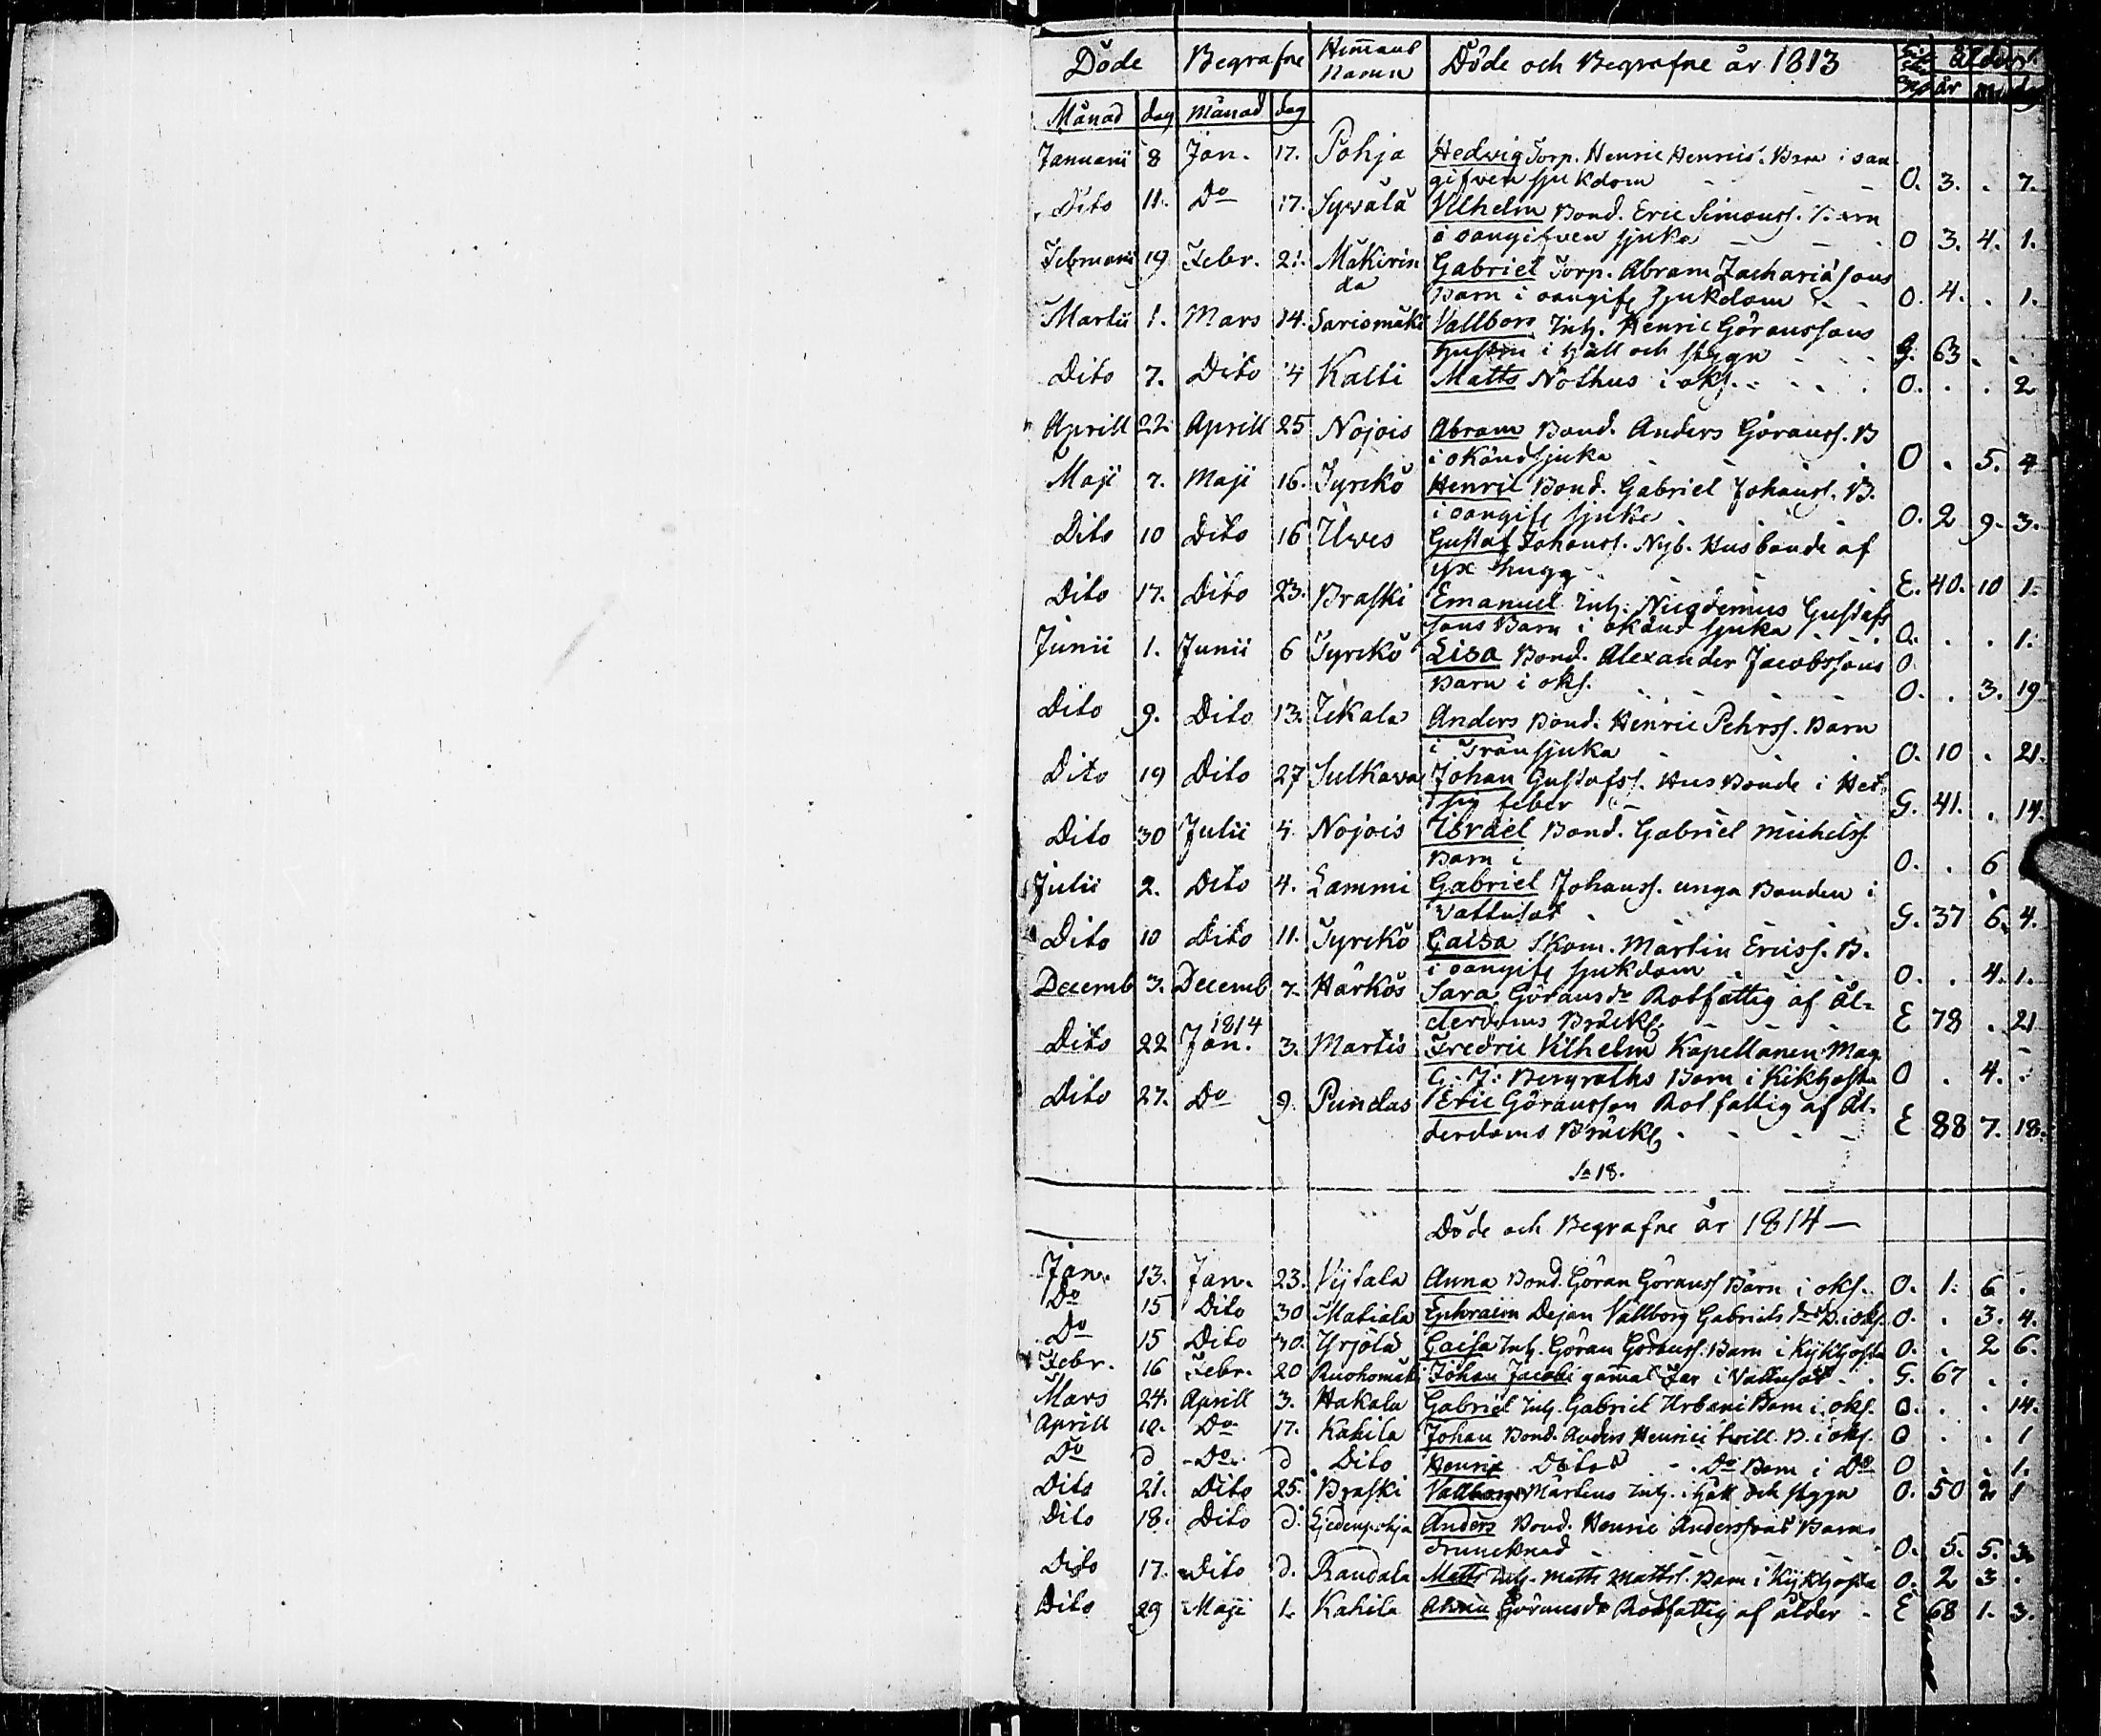 Döde Begrafne Hemmans Namn Döde och Begrafne år 1813 ålder
Månad dag Månad dag år
Januarii 8 Jan. 17. Pohja Hedvig Torp. Henric Henrics. Barn i oan
gifven sjukdom O. 3. . 7.
Dito 11. Do 17. Syvälä Vilhelm Bond. Eric Simonss. Barn
i oangifven sjuka O 3. 4. 1.
Februarii 19 Febr. 21. Mäkirin Gabriel Torp. Abram Zachariäsons
da Barn i oangifv sjukdom O. 4. . 1.
Martii 1. Mars 14. Sarismäki Vallborg Inh. Henric Göranssons
hustru i håll och stygn G. 63 . .
Dito 7. Dito 14 Kalti Matts Nothus i oks. O. . . 2
Aprill 22 Aprill 25 Nojois Abram Bond. Anders Göranss. B
i okänd sjuka O . 5. 4
Maji 7. Maji 16. Tyrckö Henric Bond. Gabriel Johanss. B.
i oangifv sjuka O. 2 9. 3.
Dito 10 Dito 16 Ilves Gustaf Johanss. Nyb. Husbonde af
yx hugg E. 40. 10 1.
Dito 17. Dito 23. Braski Emanuel Inh. Nicodemus Gustafs
sons Barn i okänd sjuka O. . . 1.
Junii 1. Junii 6 Tyrckö Lisa Bond. Alexander Jacobssons O
Barn i oks. O. . 3. 19
Dito 9. Dito 13. Uckala Anders Bond. Henric Pehrss. Barn
i Trånsjuka O. 10 . 21.
Dito 19 Dito 27 Sulkava Johan Gustafss. Hus Bonde i Het
sig feber G. 41. . 14.
Dito 30 Julii 4. Nojois Israel Bond. Gabriel Michelss.
Barn i O. . 6
Julii 2. Dito 4. Lammi Gabriel Johanss. unga Bonden i
Vattusot G. 37 6. 4.
Dito 10 Dito 11. Tyrckö Caisa Skom. Martin Ericss. B.
i oangifv sjukdom O. . 4. 1.
Decemb 3. Decemb 7. Härkös Sara Göransdr Rotfattig af Ål-
derdoms Bräckl. E 78 . 21
Dito 22 1814 Jan. 3. Martis Fredric Vilhelm Kapellanen Mag.
G: J: Bergroths Barn i Kikhosta O . 4. .
Dito 27. Do 9. Pundas Eric Göransson Rotfattig af Ål-
derdoms Bräckl. E 88 7. 18.
Sa 18.
Döde och Begrafne år 1814 —
Jan. 13. Jan. 23. Vijtala Anna Bond. Göran Göranss Barn i oks. O. 1. 6 .
Do 15 Dito 30 Matiala Ephraim Dejan Vallborg Gabriels dr B. i oks. O. . 3. 4.
Do 15 Dito 30. Yrjölä Caisa Inh. Göran Göranss. Barn i Kijkhosta O. . 2 6.
Febr. 16 Febr. 20 Ruohomäki Johan Jacobi gamal Far i Vattusot G. 67 . .
Mars 24. Aprill 3. Hakala Gabriel Inh. Gabriel Urbani Barn i oks. O. . . 14.
Aprill 10. Do 17. Kahila Johan Bond. Anders Henrici twill. B. i oks. O . . 1
Do d Do d Dito Henric Ditos Do Barn i Do O . . 1.
Dito 21. Dito 25. Braski Vallborg Märtens Inh. i håll och stygn O. 50 2 1
Dito 18. Dito d. Anders Bond. Henric Anderssons Barn
drunknad O. 5. 5. 3.
Dito 17. Dito d. Raudala Matts Inh. Matts Mattss. Barn i Kijkhosta O. 2 3 .
Dito 29 Maji 1. Kahila Göransdr Rotfattig af ålder E 68 1. 3.